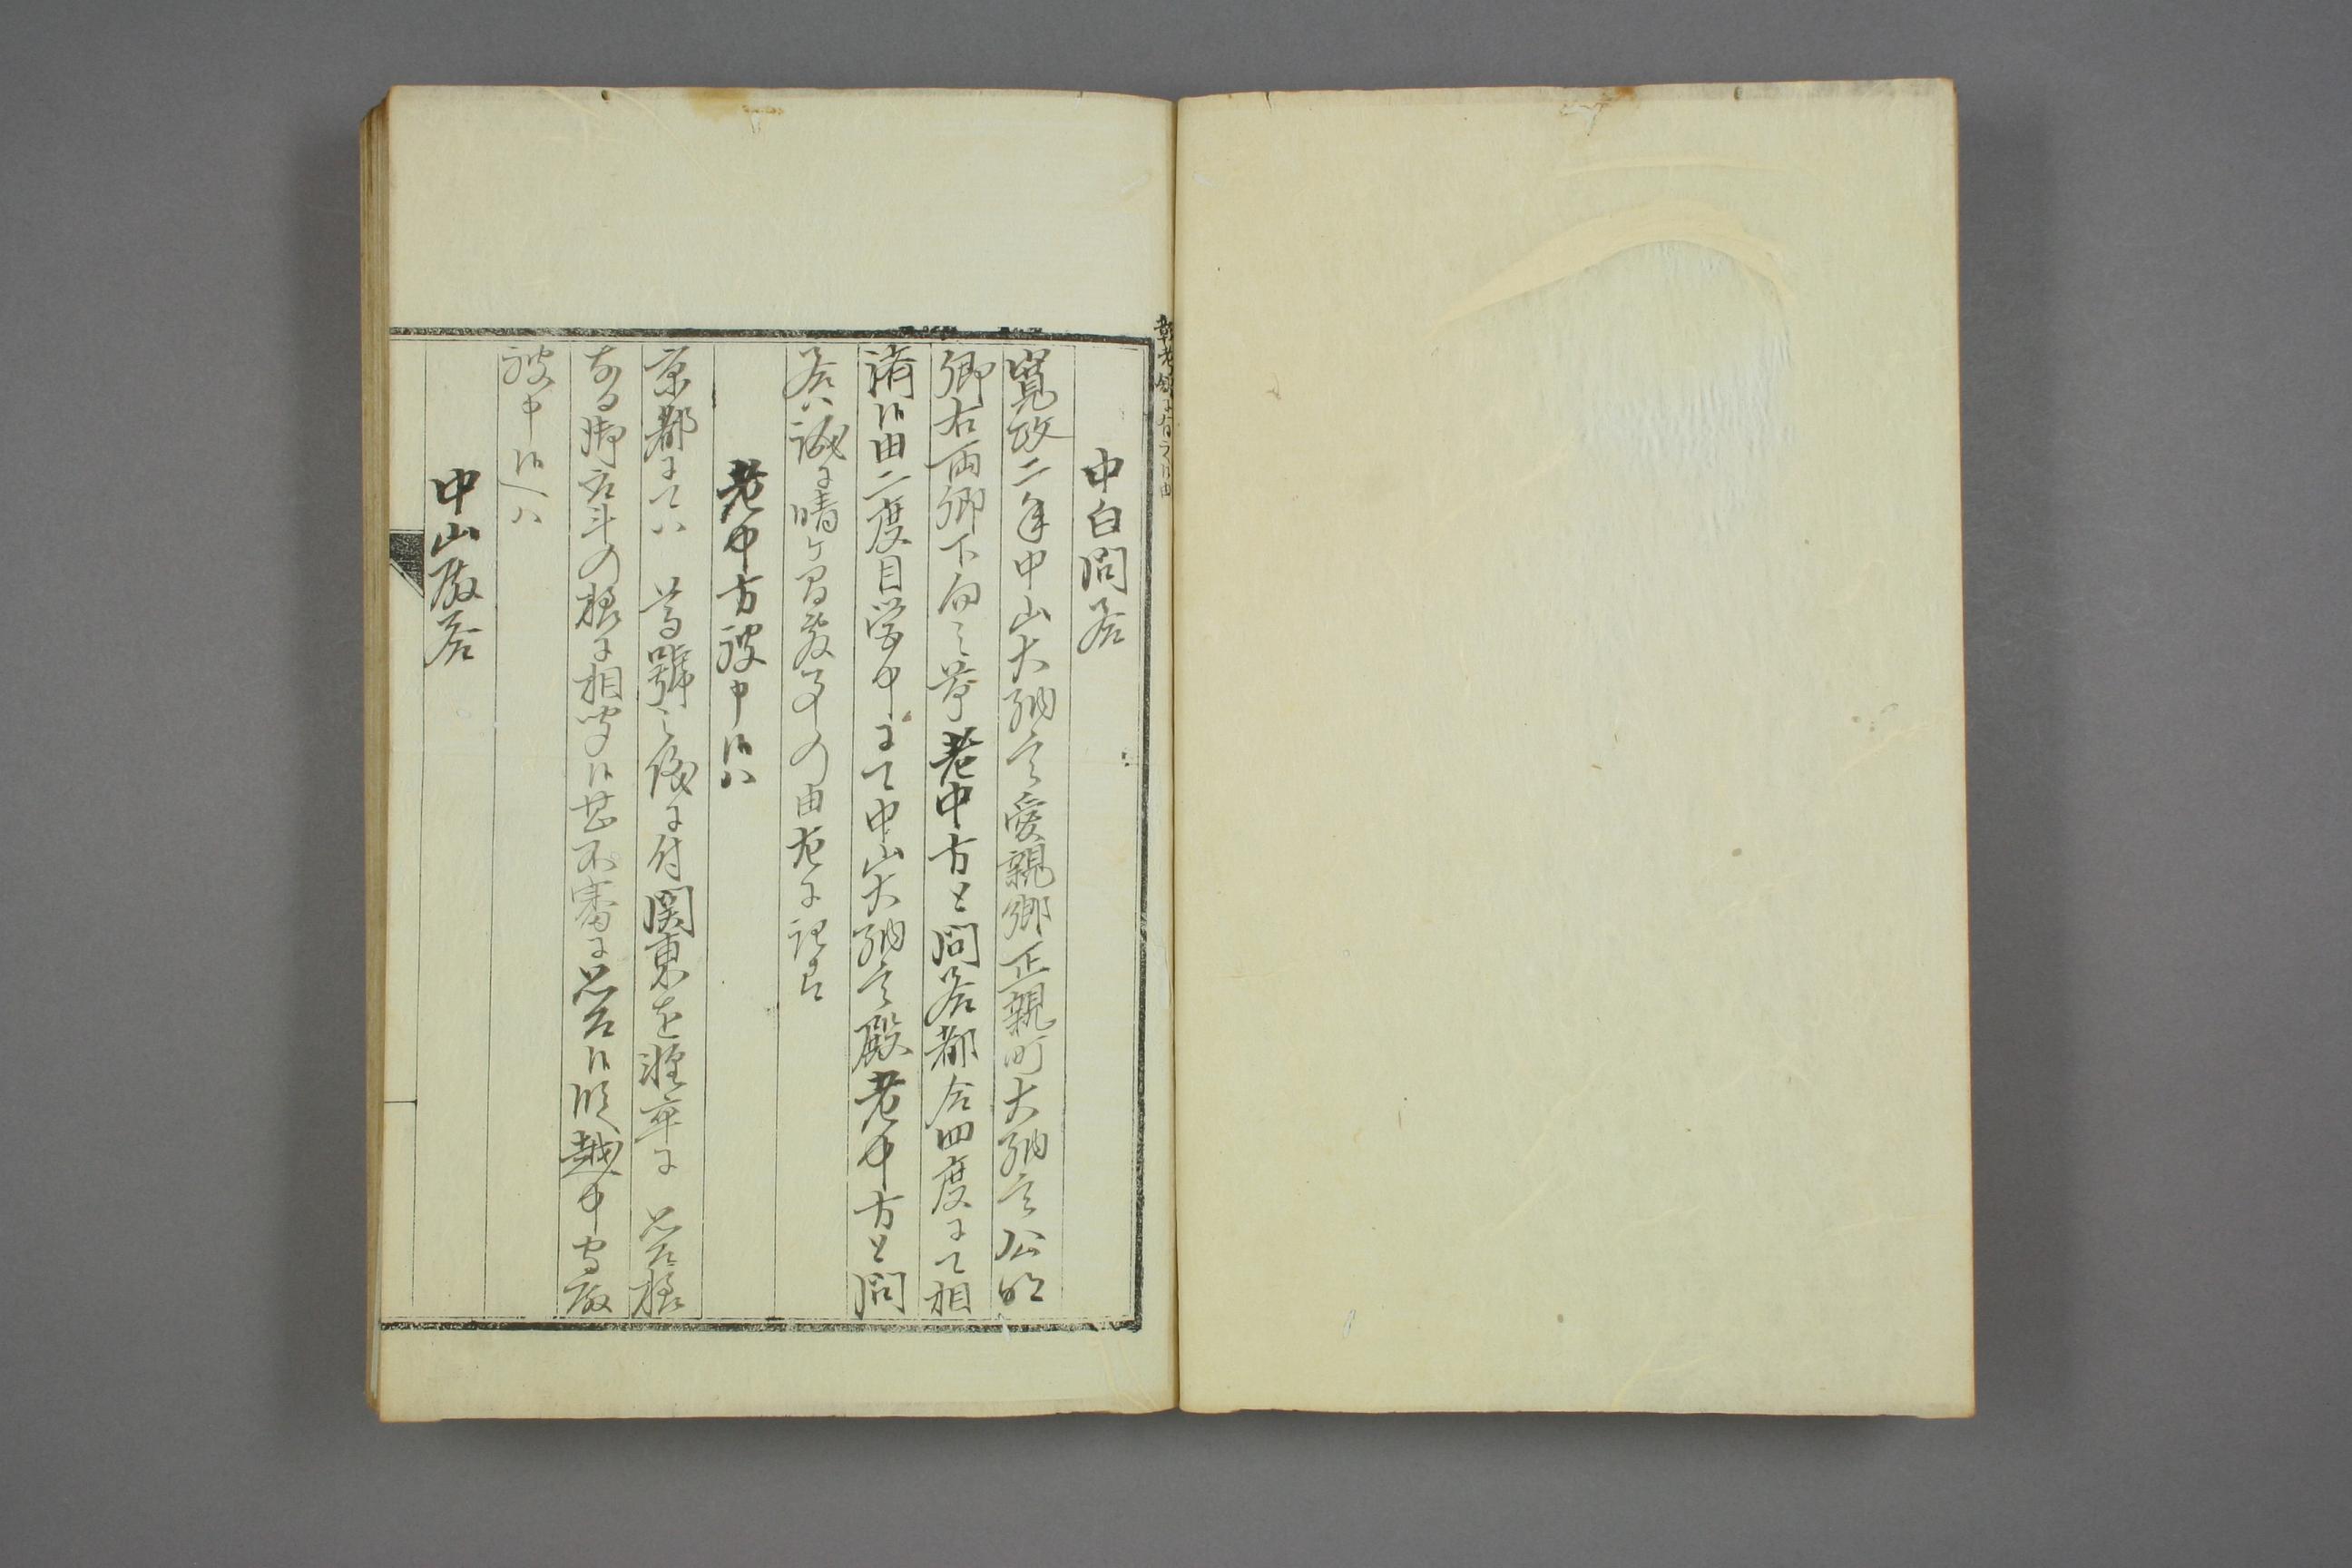 中白問答
寛政二年中山大納言愛親卿正親町大納言公明
卿右両卿下向之節老中方と問答都合四度ニて相
済候由二度目営中ニて中山大納言殿老中方と問
答ハ誠ニ晴ケ間敷事の由左ニ記るす
老中方被申候ハ
京都ニてハ 尊號之儀ニ付関東を軽率ニ 思召様
なる御沙汰の様ニ相聞候甚不審ニ思召候段越中守殿
被申候ヘハ
中山殿答